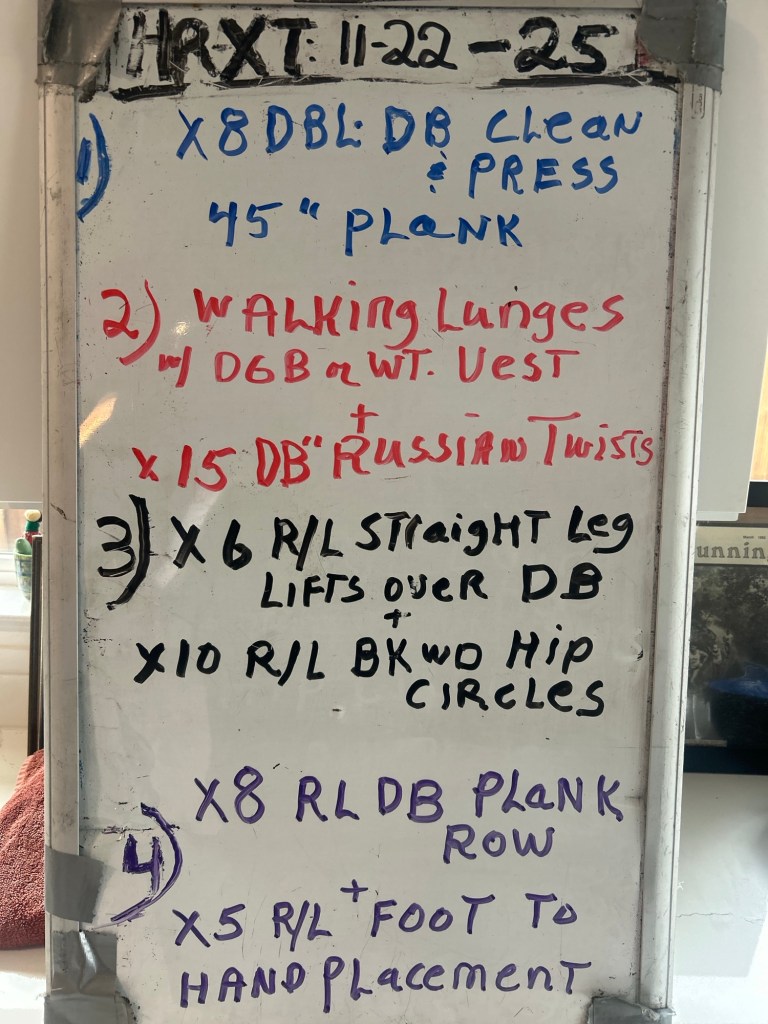 HRXT: 11-22-25
1) X8 DBL. DB Clean
& PRESS
45" PLANK
2) WALKing Lunges
w/ DGB or WT. VEST
+
x 15 DB" RUSSIAN Twists
3) X 6 R/L STraigHT Leg
LIFTS OVER DB
+
X10 R/L BKWD Hip
CIRCLES
4) X8 RL DB PLANK
ROW
+
X5 R/L FOOT TO
HAND Placement
unnin